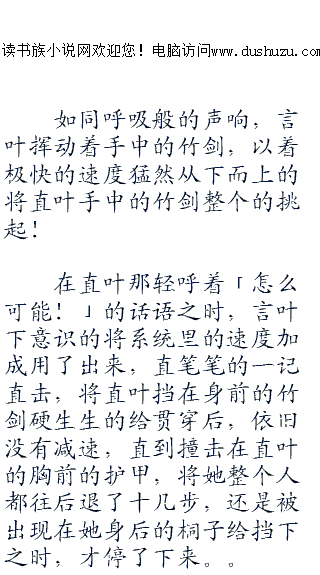 读书族小说网欢迎您！电脑访问www.dushuzu.com
如同呼吸般的声响，言
叶挥动着手中的竹剑，以着
极快的速度猛然从下而上的
将直叶手中的竹剑整个的挑
起！
在直叶那轻呼着「怎么
可能！」的话语之时，言叶
下意识的将系统里的速度加
成用了出来，直笔笔的一记
直击，将直叶挡在身前的竹
剑硬生生的给贯穿后，依旧
没有减速，直到撞击在直叶
的胸前的护甲，将她整个人
都往后退了十几步，还是被
出现在她身后的桐子给挡下
之时，才停了下来。。